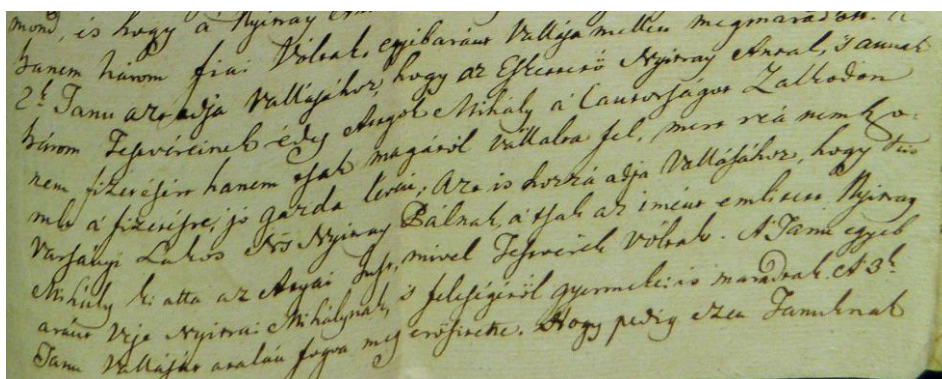 mond, is hogy á Nyiray
hanem három fiai Vóltak, egyibaránt Vallása mellett megmaradott. A
2k Tanu azt adja Vallásához, hogy az Esketető Nyiray Annak, 's annak
három Testvéreinek édes Annyok Mihály á Zalkodon
nem fizetésért hanem tsak magáról Vállalta fel, mert reá nem szo-
rult á fizetésre, jó gazda lévén; Azt is hozzá adja Vallásához, hogy
Varsányi Lakos Nyiray Pálnak, á tsak az imént emlitett Nyiray
Mihály ki atta az Atyai Just, mivel Testvérek vóltak. A Tanu egyéb
aránt Veje Nyirai Mihálynak, 's feleségéről gyermekei is maradtak. A 3k
Tanu Vallását azután fogva meg erősitette. Hogy pedig ezen Tanuknak